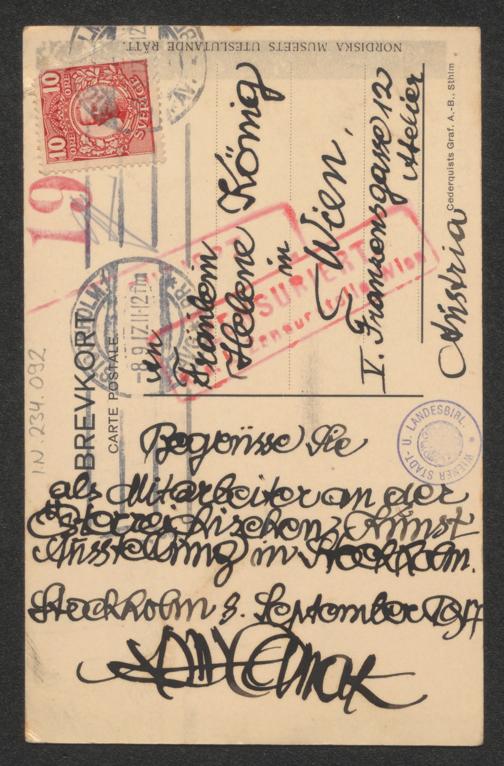 NORDISKA MUSEETS UTESLUTANDE RÄTT.
10 ÖRE ÖRE 10
SVERIGE
19
BREVKORT
CARTE POSTALE
-8.9.17.11-12 Fm
an
Fräulein
Helene König
in
Wien.
V. Fransensgasse 12
Atelier
Austria
Cederquists Graf. A.-B., Sthlm
ZENSURIERT
Wien
WIENER STADT- U. LANDESBIBL.
I.N. 234.092
Begrüsse Sie
als Mitarbeiter an der
Österreichischen Kunst
Ausstellung in Stockholm.
Stockholm 8. September 1917